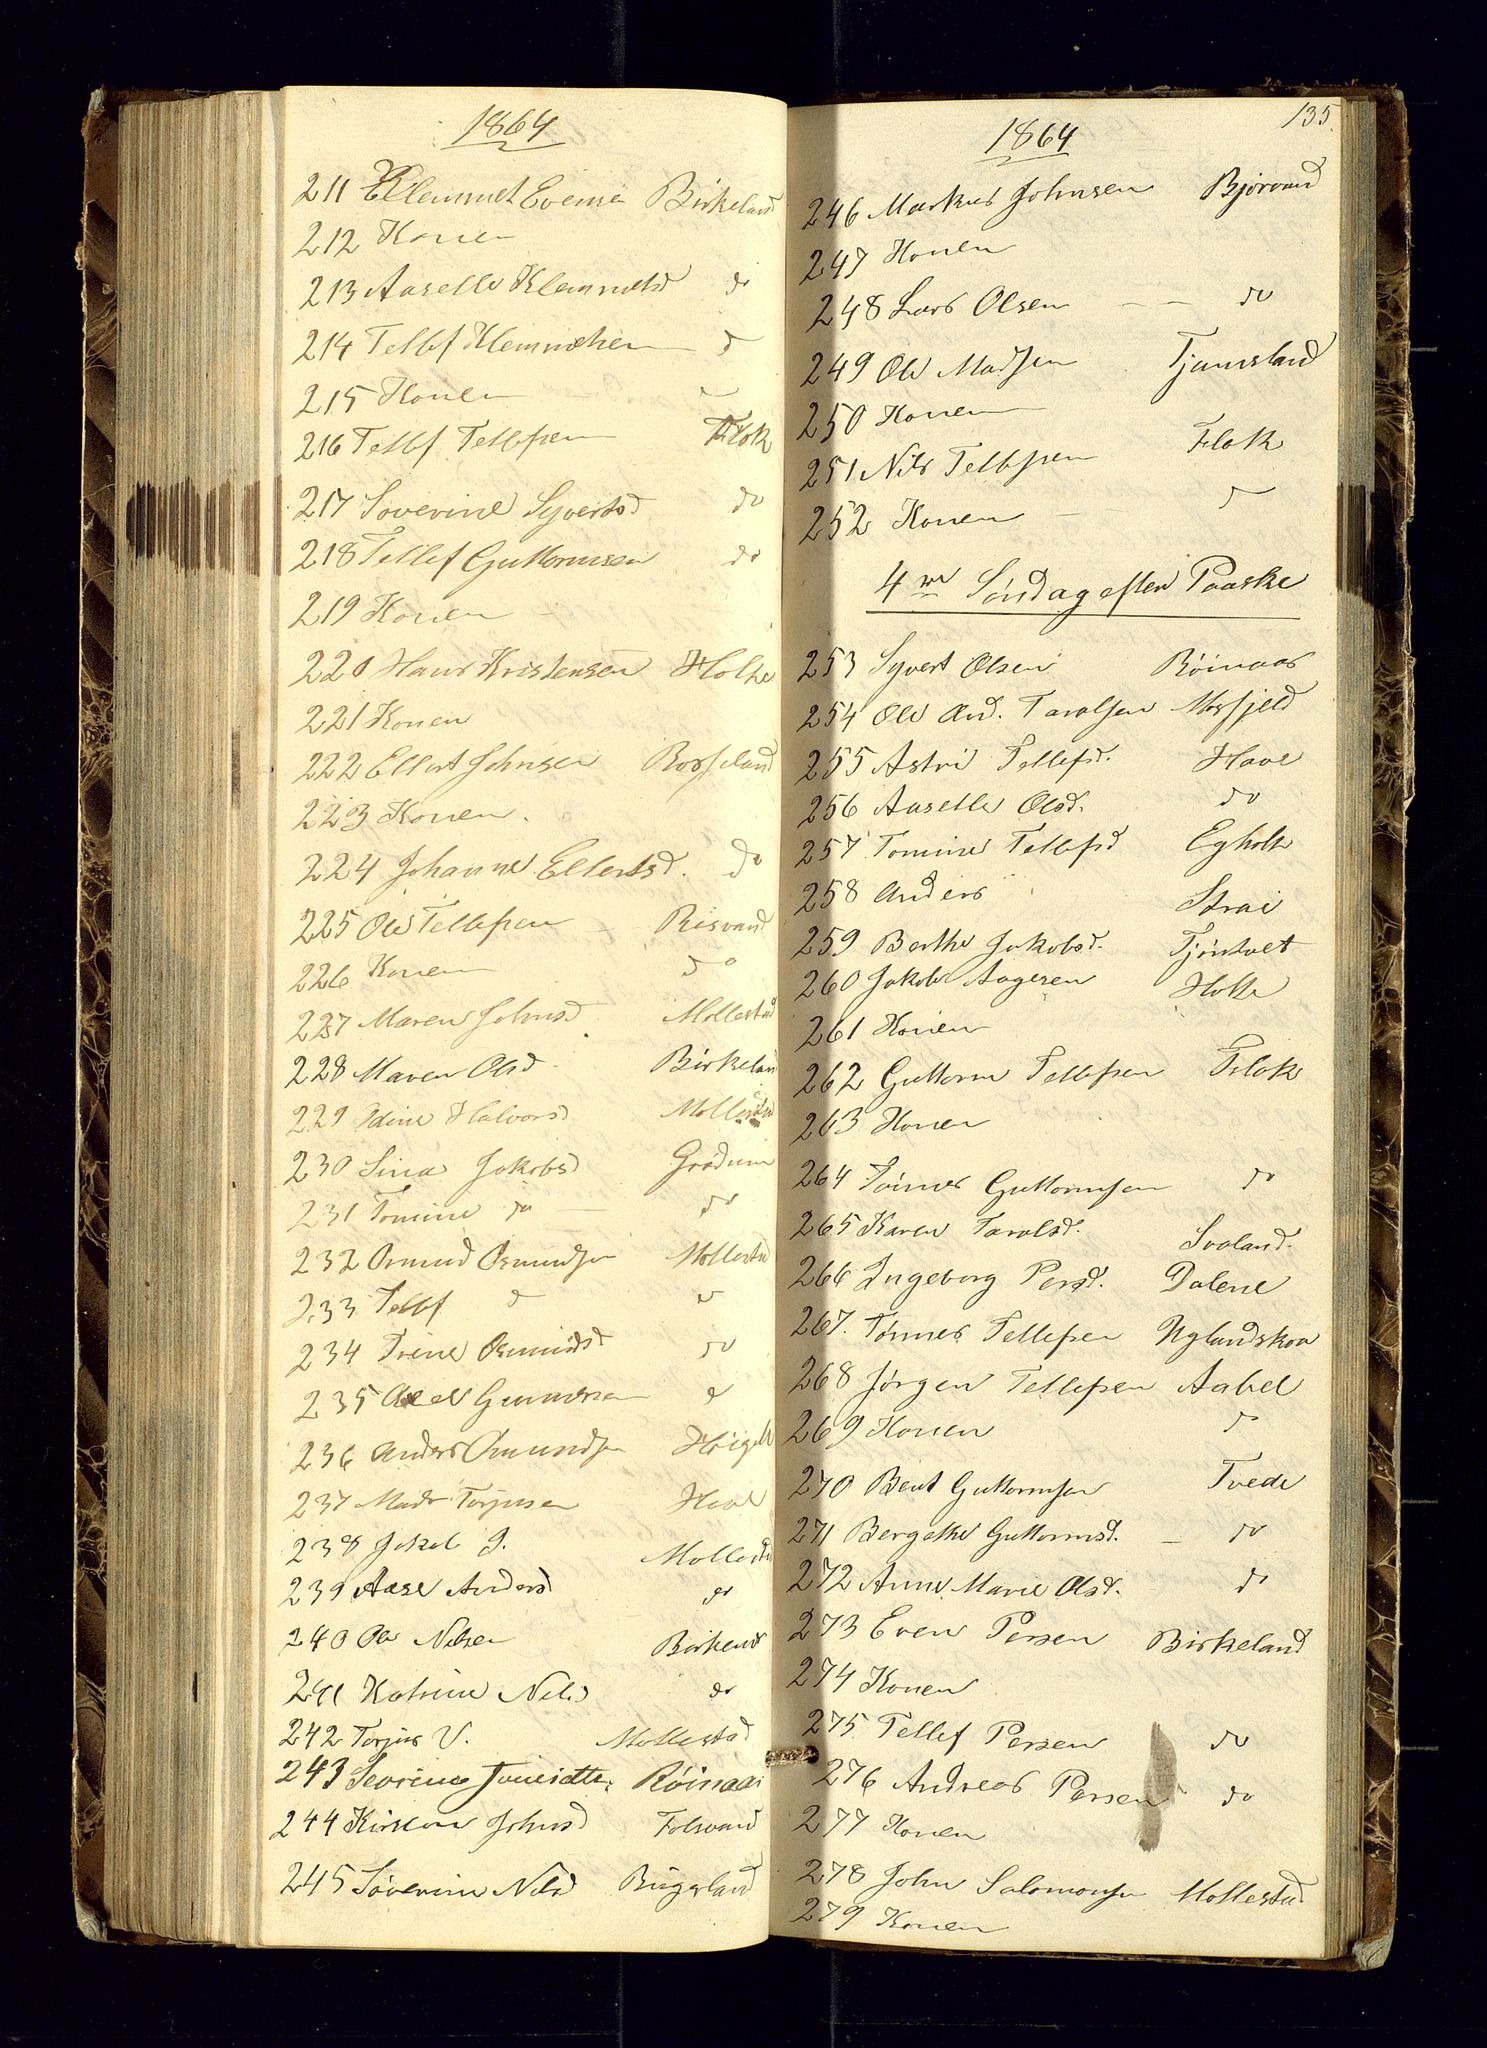 1864
211 Klemmet Evensen Birkeland
212 Konen
213 Aaselle Klemmetsd do
214 Tellef Klemmetsen d
215 Konen
216 Tellef Tellefsen Flak
217 Severine Syvertsd do
218 Tellef Guttormsen do
219 Konen
220 Hans Kristensen Holte
221 Konen
222 Ellert Johnsen Rosseland
223 Konen.
224 Johanne Ellertsd. do
225 Ole Tellefsen Risvand
226 Konen do
227 Maren Johnsd Mollestad
228 Maren Olsd Birkeland
229 Edine Halvorsd Mollestad
230 Sina Jakobsd Grødum
231 Tomine do do
232 Osmund Osmundsen Mollestad
233 Tellef d do
234 Trine Osmundsd do
235 Gundersen do
236 Anders Osmundsen
237 Mads Torjusen Haave
238 Jakob J. Mollestad
239 Aase Andersd do
240 Ole Nilsen
241 Katrine Nilsd do
242 Torjus V. Mollestad
243 Røinaas
244 Johnsd Folsvand
245 Søverine Nilsd
135.
1864
246 Markus Johnsen Bjorvand
247 Konen
248 Lars Olsen do
249 Ole Madsen Tjamsland
250 Konen
251 Nils Tellefsen Flak
252 Konen d
4de Søndag efter Paaske
253 Syvert Olsen Røinaas
254 Ole And. Taralsen Mosfjeld
255 Astri Tellefsd. Haave
256 Aaselle Olsd. do
257 Tomine Tellefsd Egholte
258 Anders Strai
259 Berthe Jakobsd. Tjøntvet
260 Jakob Aagesen Holte
261 Konen
262 Guttorm Tellefsen Flak
263 Konen
264 Tønnes Guttormsen do
265 Karen Taralsd. Svaland.
266 Ingeborg Persd. Dalene
267. Tønnes Tellefsen Uglandskva
268 Jørgen Tellefsen Aabel
269 Konen d
270 Bent Guttormsen Tvede
271 Bergethe Guttormsd. do
272 Anne Marie Olsd. do
273 Even Persen Birkeland
274 Konen
275 Tellef Persen do
276 Andreas Persen do
277 Konen
278 John Salomonsen Mollestad
279 Konen